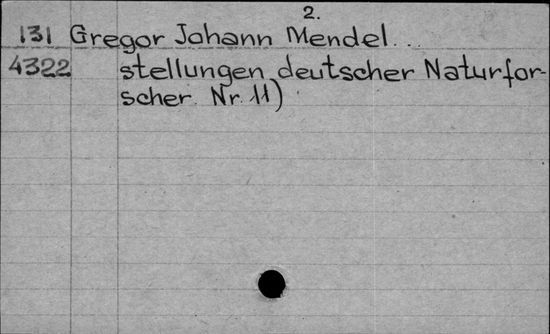 2.
131 Gregor Johann Mendel...
4322 stellungen deutscher Naturfor-
scher. Nr. 11)